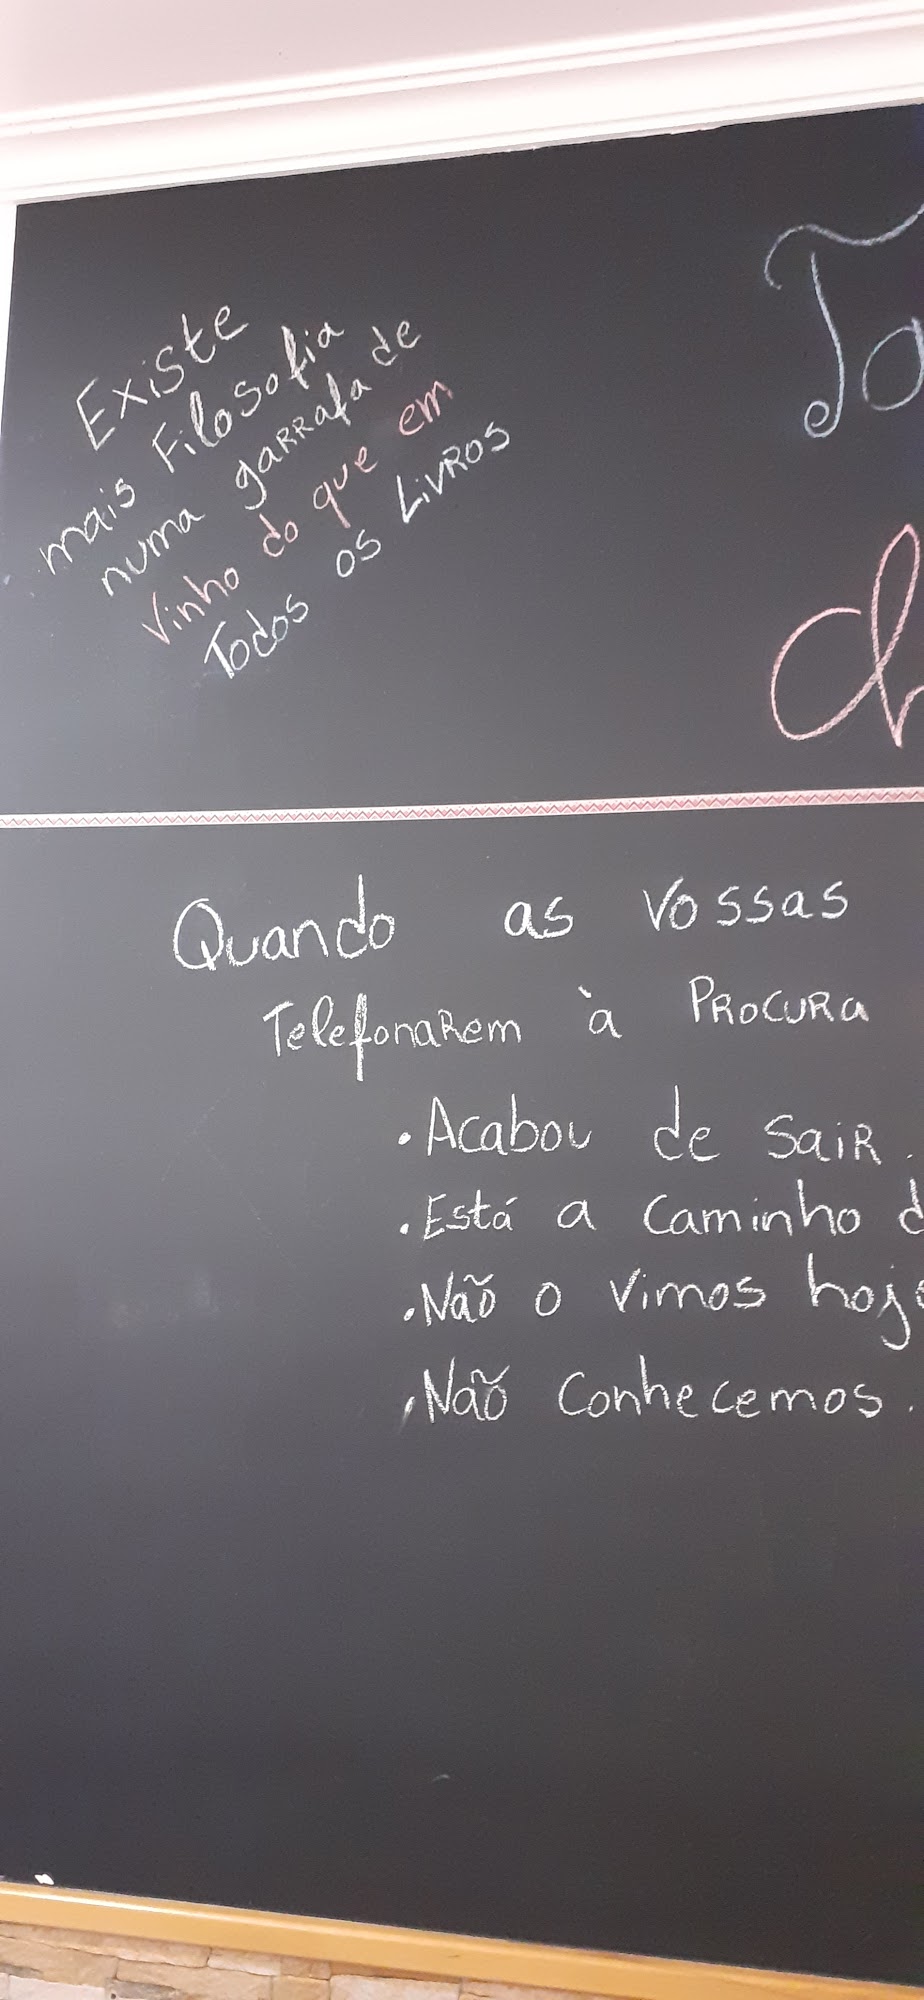 Existe
mais Filosofia
numa garrafa de
Vinho do que em
Todos os Livros
Quando as vossas
Telefonarem à Procura
. Acabou de sair.
. Está a caminho
. Não o vimos
. Não conhecemos.